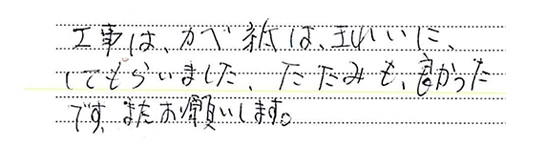 工事は、カベ紙は、きれいに、
してもらいました、たたみも、良かった
です、またお願いします。